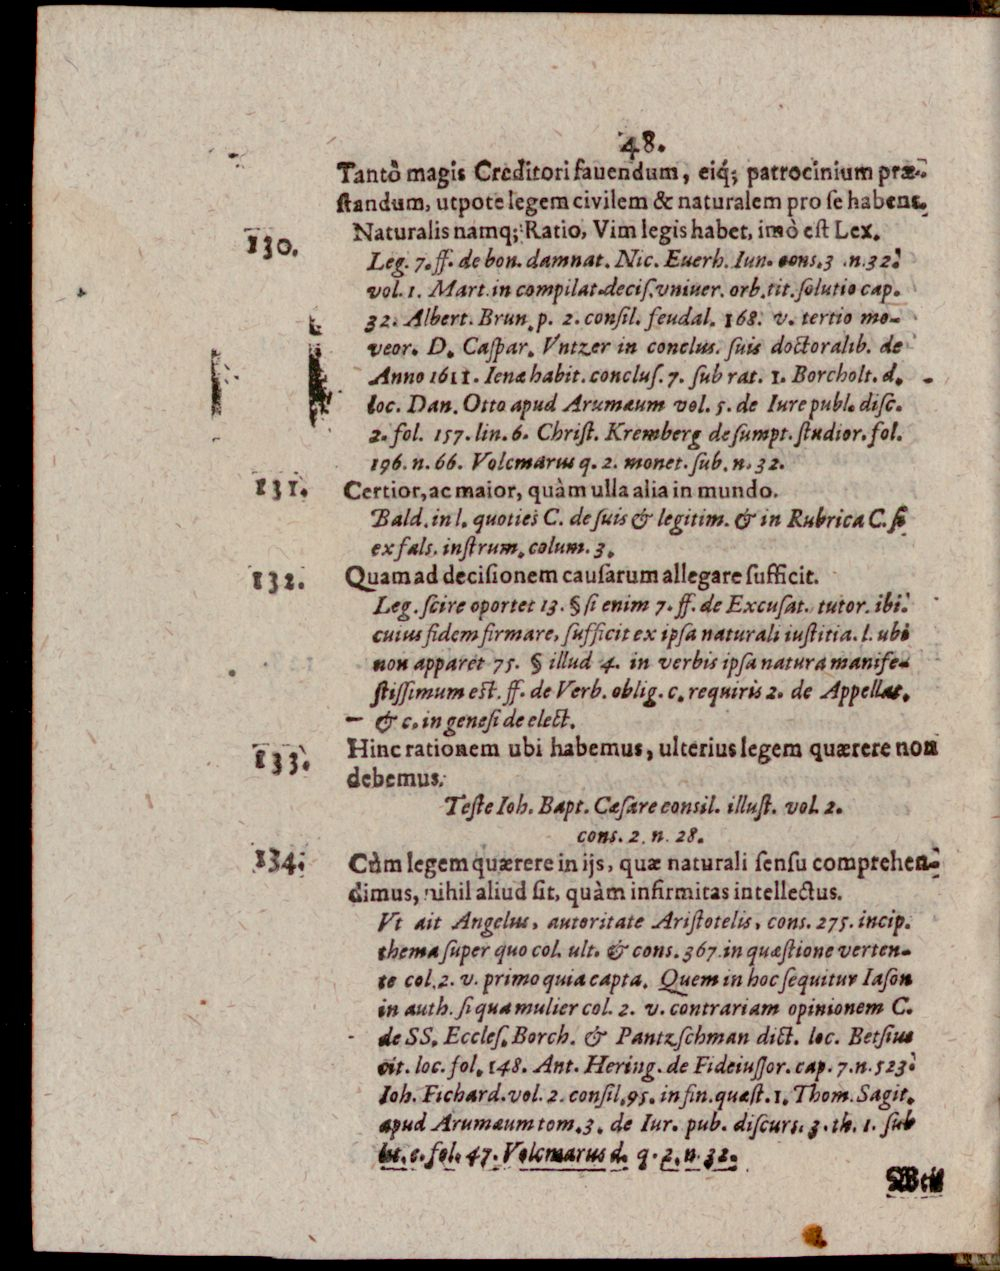 48.
Tantò magis Creditori fauendum, eiq́; patrocinium præ-
ſtandum, utpote legem civilem & naturalem pro ſe habens.
130. Naturalis namq; Ratio, Vim legis habet, imò eſt Lex.
Leg. 7. ff. de bon. damnat. Nic. Euerh. Iun. cons. 3 .n. 32.
vol. 1. Mart. in compilat. deciſ. vniuer. orb. tit. ſolutio cap.
32. Albert. Brun. p. 2. conſil. feudal. 168. v. tertio mo-
veor. D. Caſpar. Vntzer in conclus. ſuis doctoralib. de
Anno 1611. Ienæ habit. concluſ. 7. ſub rat. 1. Borcholt. d.
loc. Dan. Otto apud Arumæum vol. 5. de Iure publ. diſc.
2. fol. 157. lin. 6. Chriſt. Kremberg de ſumpt. ſtudior. fol.
196. n. 66. Volcmarus q. 2. monet. ſub. n. 32.
131. Certior, ac maior, quàm ulla alia in mundo.
Bald. in l. quoties C. de ſuis & legitim. & in Rubrica C. ſi
ex fals. inſtrum. colum. 3.
132. Quam ad deciſionem cauſarum allegare ſufficit.
Leg. ſcire oportet 13. § ſi enim 7. ff. de Excuſat. tutor. ibi:
cuius fidem firmare, ſufficit ex ipſa naturali iuſtitia. l. ubi
non apparet 75. § illud 4. in verbis ipſa natura manife-
ſtiſſimum est. ff. de Verb. oblig. c. requiris 2. de Appellat.
& c. in geneſi de elect.
133. Hinc rationem ubi habemus, ulterius legem quærere non
debemus.
Teſte Ioh. Bapt. Cæſare conſil. illuſt. vol. 2.
cons. 2. n. 28.
134. Cùm legem quærere in ijs, quæ naturali ſenſu comprehen-
dimus, nihil aliud ſit, quàm infirmitas intellectus.
Vt ait Angelus, autoritate Ariſtotelis, cons. 275. incip.
thema ſuper quo col. ult. & cons. 367. in quæſtione verten-
te col. 2. v. primo quia capta. Quem in hoc ſequitur Iaſon
in auth. ſi qua mulier col. 2. v. contrariam opinionem C.
de SS. Eccleſ. Borch. & Pantzſchman dict. loc. Betſius
cit. loc. fol. 148. Ant. Hering. de Fideiuſſor. cap. 7. n. 523.
Ioh. Fichard. vol. 2. conſil. 95. in fin. quæſt. 1. Thom. Sagit.
apud Arumæum tom. 3. de Iur. pub. diſcurs. 3. th. 1. ſub
lit. c. fol. 47. Volcmarus d. q. 2. n. 32.
Weil